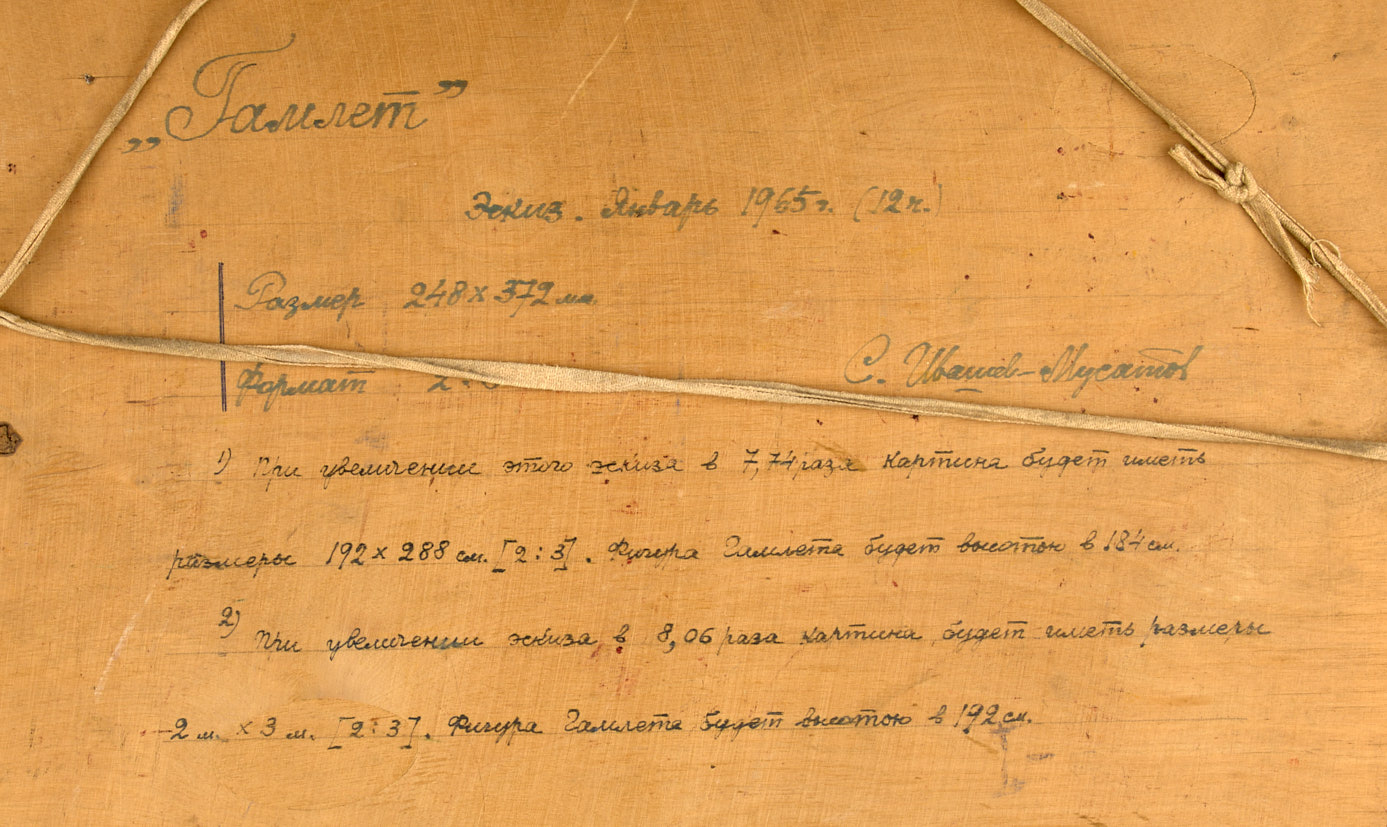 „Гамлет”
Эскиз. Январь 1965 г. (12 ч.)
Размер 248 × 372 мм
С. Ивашев-Мусатов
Формат 2 :
1) При увеличении этого эскиза в 7,74 раза картина будет иметь
размеры 192 × 288 см. [2 : 3]. Фигура Гамлета будет высотою в 184 см.
2) При увеличении эскиза в 8,06 раза картина будет иметь размеры
2 м. × 3 м. [2 : 3]. Фигура Гамлета будет высотою в 192 см.